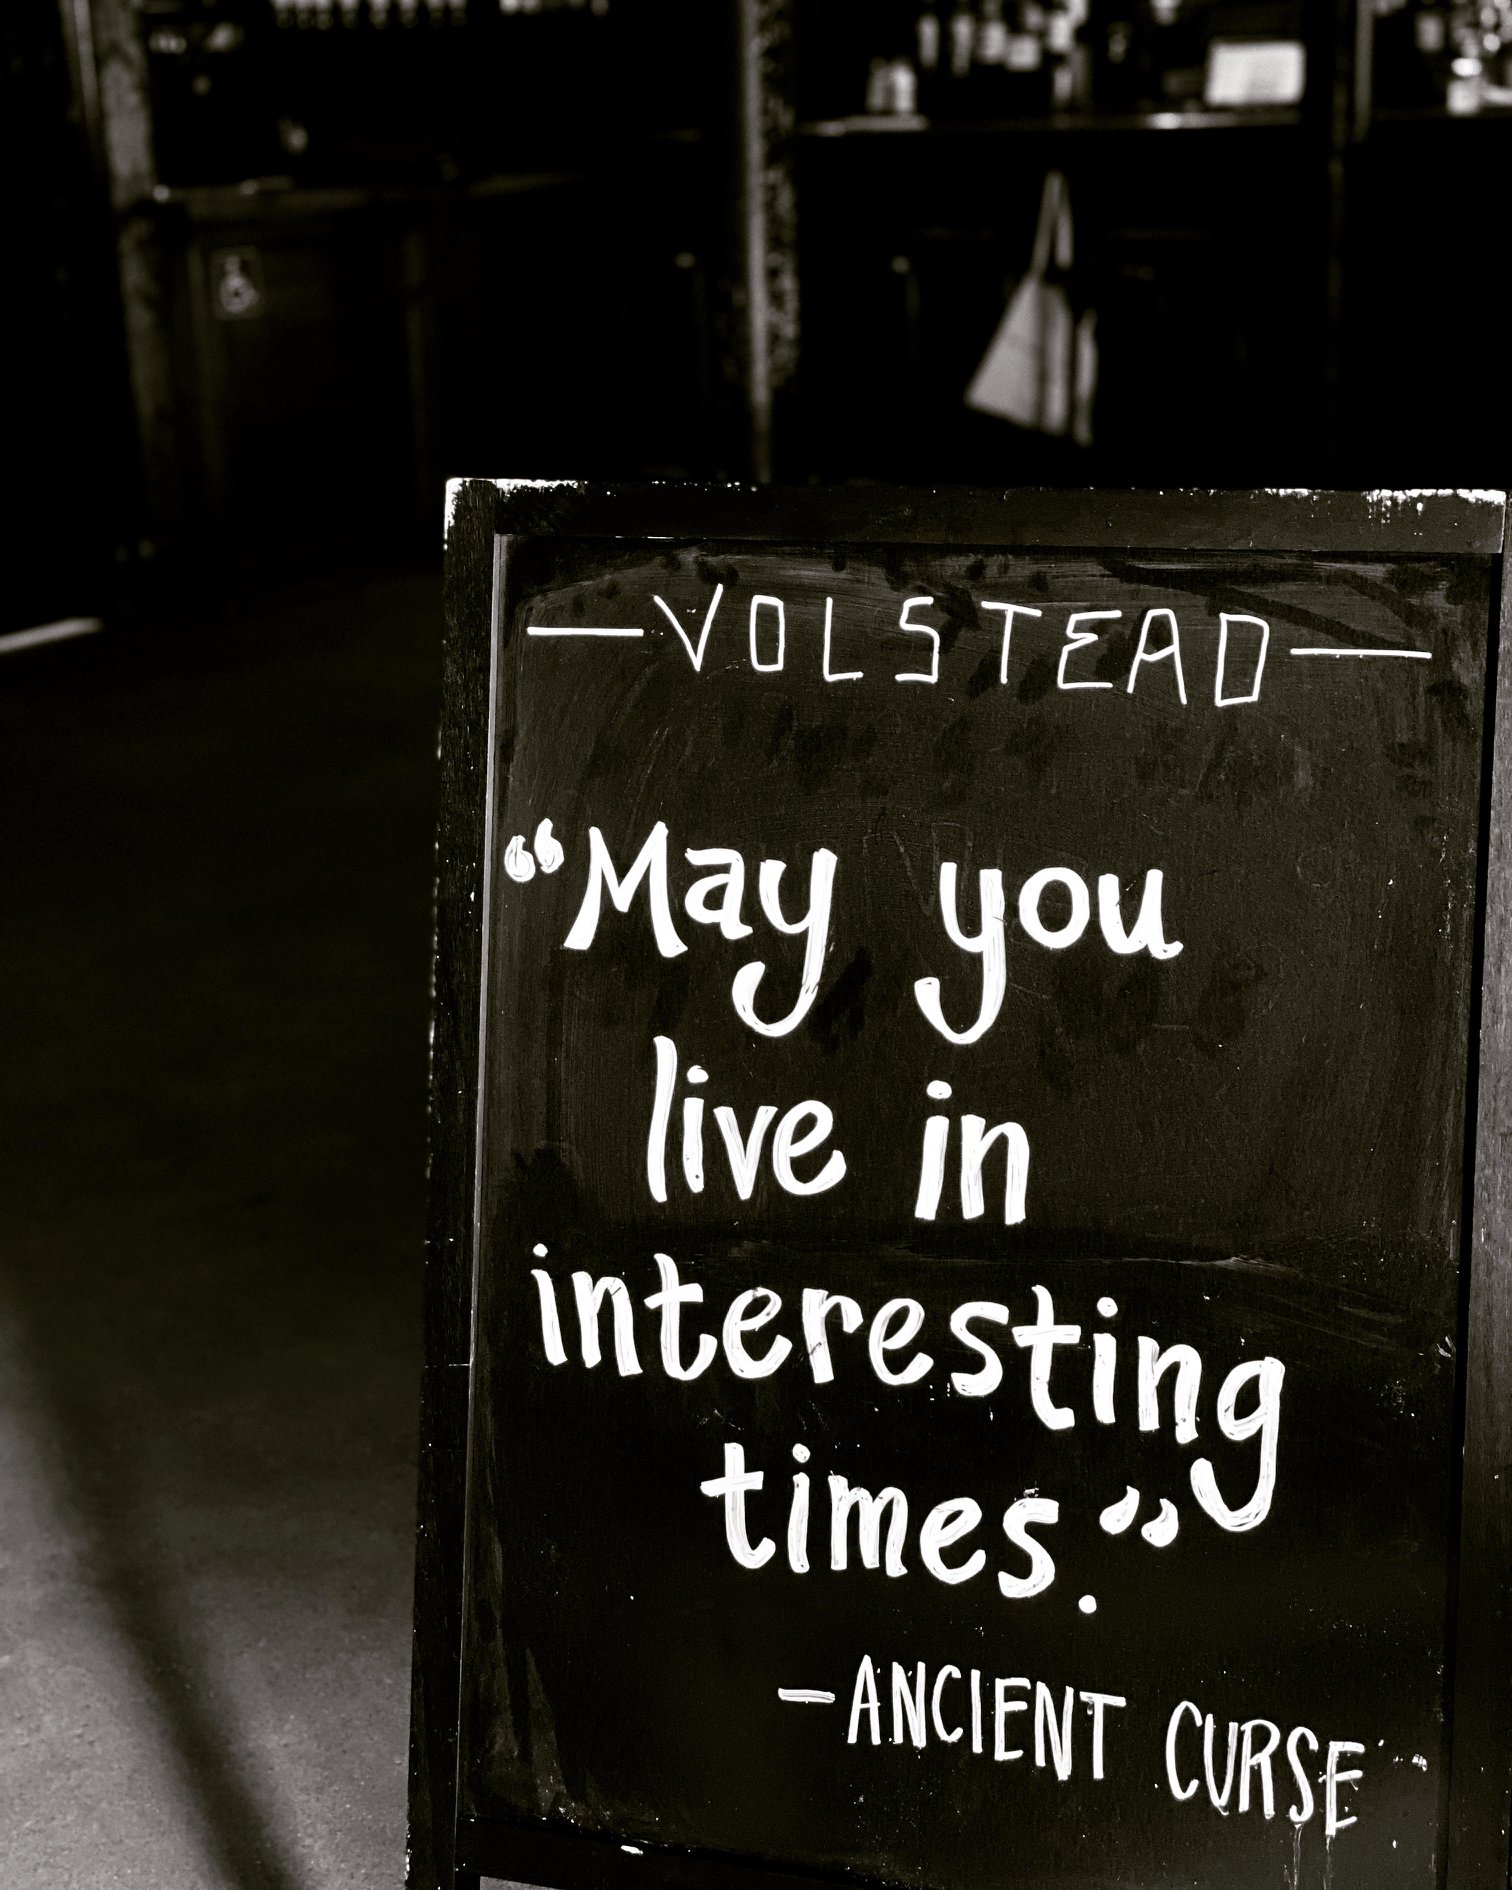 —VOLSTEAD—
“May you
live in
interesting
times.”
—ANCIENT CURSE